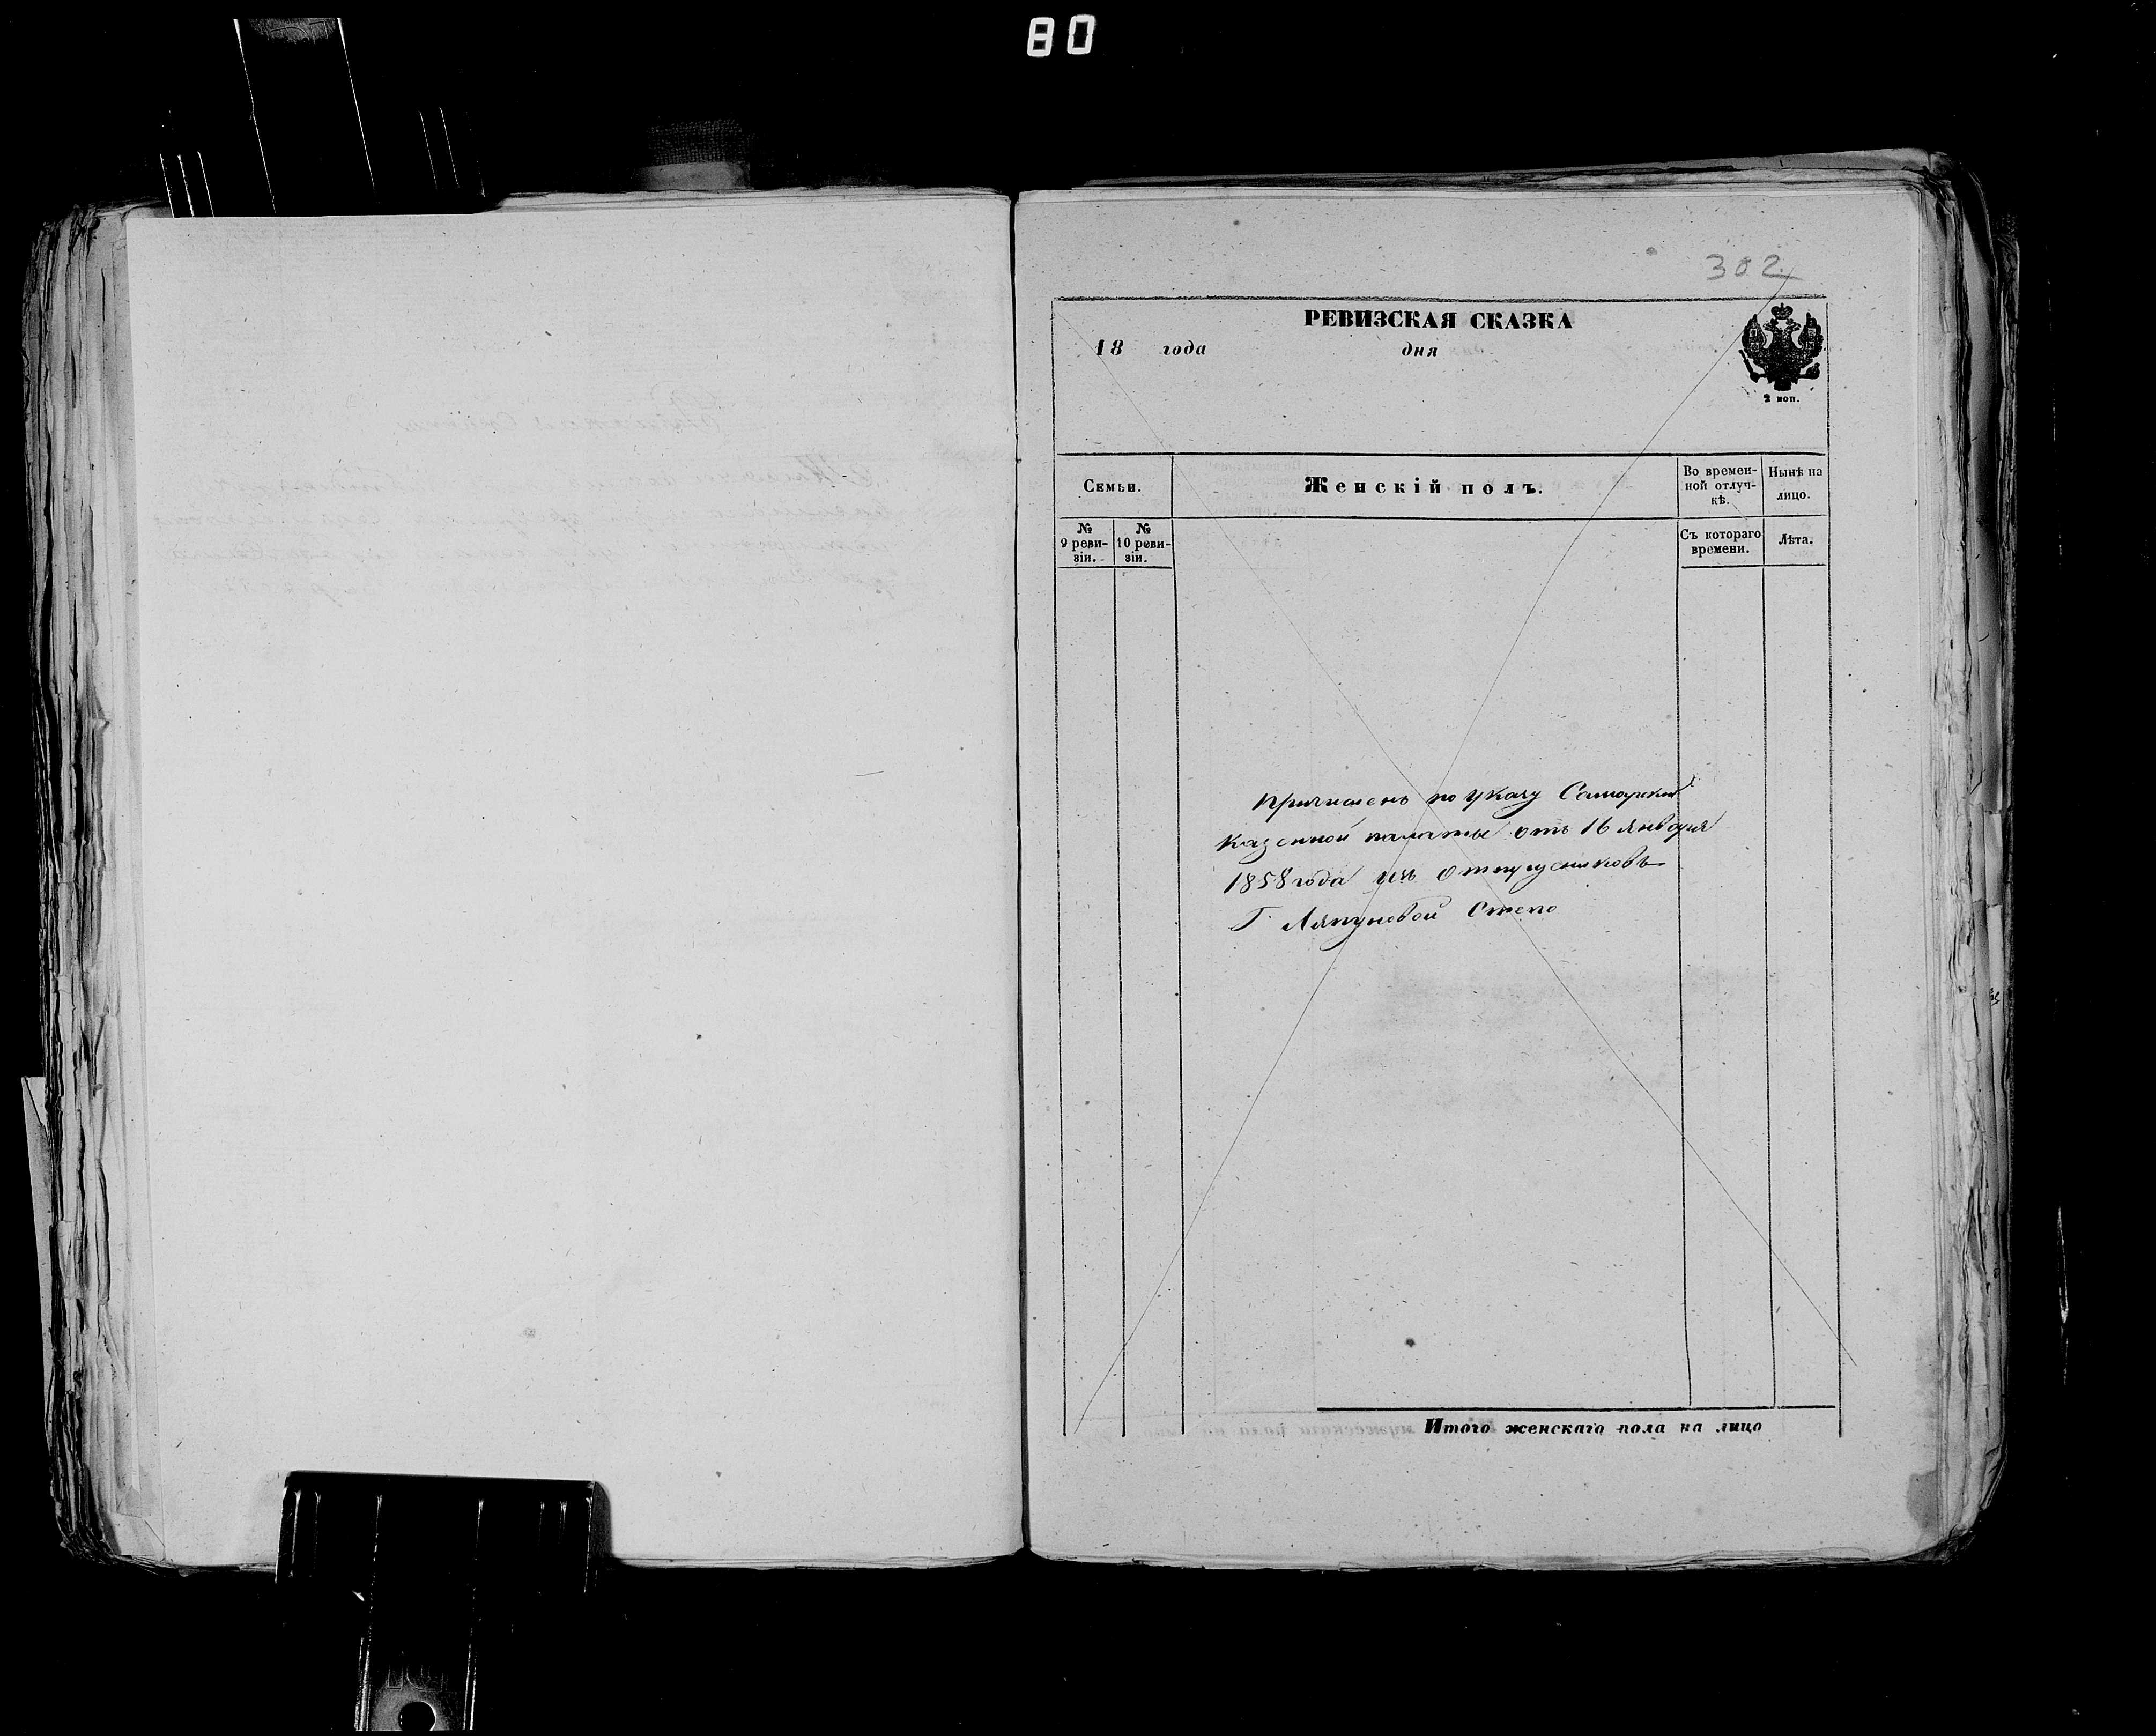 80
302
РЕВИЗСКАЯ СКАЗКА
18 года дня
2 коп.
Семьи.
Женскій полъ.
Во времен-
ной отлуч-
кѣ.
Нынѣ на
лицо.
№
9 реви-
зіи.
№
10 реви-
зіи.
Съ котораго
времени.
Лѣта.
Причисленъ по указу Самарской
казенной палаты отъ 16 Января
1858 года изъ отпущениковъ
Г. Ляпуновой Степа
Итого женскаго пола на лицо